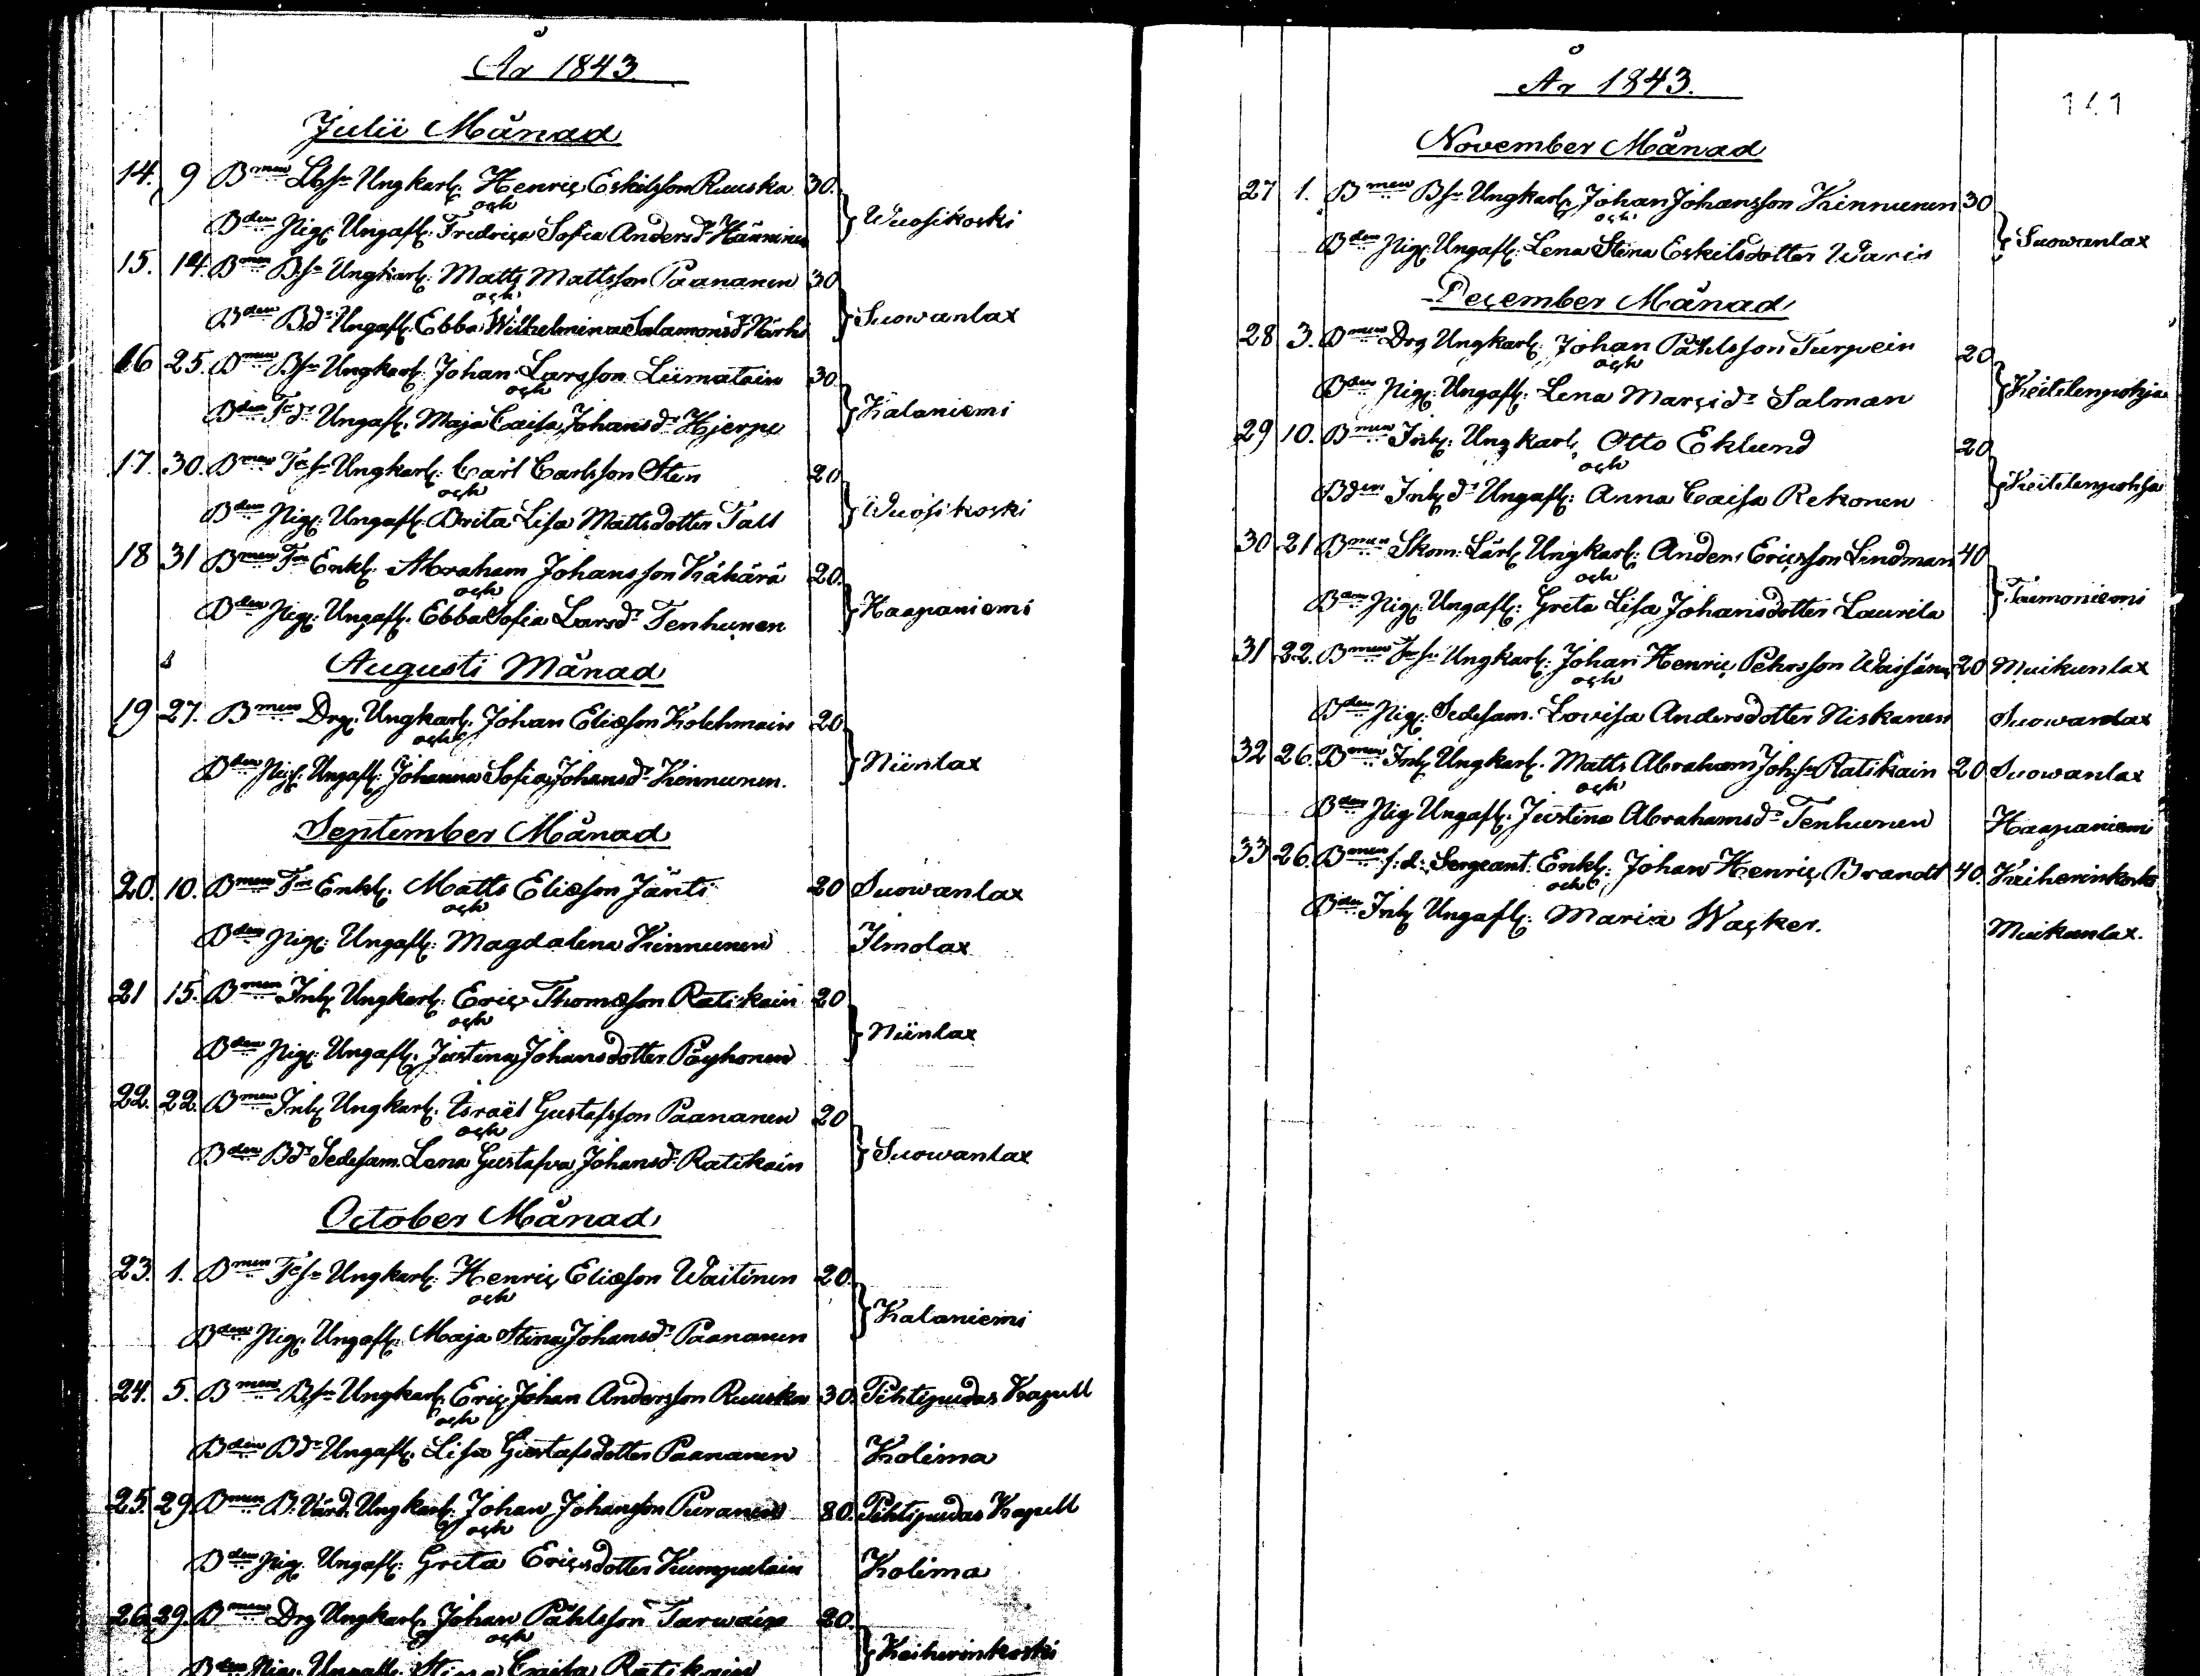 År 1843.
Julii Månad
14. 9 Bmen Lbsn Ungkarl. Henric Eskilsson Ruuska 30.
och
Bden Pig. Ungafl. Fredrica Sofia Andersd:r Hänninen
} Wuosikoski
15. 14. Bmen Bsn Ungkarl. Matts Mattsson Paananen 30
och
Bden Bd:r Ungafl. Ebba Wilhelmina Salamonsd:r Närhi
} Suowanlax
16 25. Bmen Bsn Ungkarl. Johan Larsson Liimatain 30
och
Bden Td:r Ungafl. Maja Caisa Johansd:r Hjerpe
} Kalaniemi
17. 30. Bmen Tsn Ungkarl. Carl Carlsson Sten 20
och
Bden Pig. Ungafl. Brita Lisa Mattsdotter Tall
} Wuosikoski
18 31 Bmen Tn Enkl. Abraham Johansson Kähärä 20.
och
Bden Pig. Ungafl. Ebba Sofia Larsd:r Tenhunen
} Haapaniemi
Augusti Månad
19 27. Bmen Drg. Ungkarl. Johan Eliasson Kolehmain 20
och
Bden Pig. Ungafl. Johanna Sofia Johansd:r Kinnunen.
} Niinlax
September Månad
20. 10. Bmen Tn Enkl. Matts Eliasson Jänti 20 Suowanlax
och
Bden Pig. Ungafl. Magdalena Kinnunen Ilmolax
21 15. Bmen Inh. Ungkarl. Eric Thomasson Ratikain 20
och
Bden Pig. Ungafl. Justina Johansdotter Pöyhonen
} Niinlax
22. 22. Bmen Inh. Ungkarl. Israël Gustafsson Paananen 20
och
Bden Bd:r Sedesam. Lena Gustafva Johansd:r Ratikain
} Suowanlax
October Månad
23. 1. Bmen Tsn Ungkarl. Henric Eliasson Waitinen 20.
och
Bden Pig. Ungafl. Maja Stina Johansd:r Paananen
} Kalaniemi
24. 5. Bmen Bsn Ungkarl. Eric Johan Andersson Ruuska 30. Pihtipudas Kapell
och
Bden Bd:r Ungafl. Lisa Gustafsdotter Paananen Kolima
25. 29. Bmen B. Värd. Ungkarl. Johan Johansson Puranen 80. Pihtipudas Kapell
och
Bden Pig. Ungafl. Greta Ericsdotter Kumpulain Kolima
26. 29. Bmen Drg Ungkarl. Johan Påhlsson Tarwain 20.
och
Bden Pig. Ungafl. Stina Caisa Ratikain
} Keiherinkoski
År 1843.
141
November Månad
27 1. Bmen Bsn Ungkarl. Johan Johansson Kinnunen 30
och
Bden Pig. Ungafl. Lena Stina Eskilsdotter Waris
} Suowanlax
December Månad
28 3. Bmen Drg Ungkarl. Johan Påhlsson Turpein 20
och
Bden Pig. Ungafl. Lena Marcid:r Salman
} Keitelenpohja
29 10. Bmen Inh. Ungkarl. Otto Eklund 20
och
Bden Inh. d:r Ungafl. Anna Caisa Rekonen
} Keitelenpohja
30 21 Bmen Skom. Lärl. Ungkarl. Anders Ericsson Lindman 40
och
Bden Pig. Ungafl. Greta Lisa Johansdotter Laurila
} Toimoniemi
31 22. Bmen Tsn Ungkarl. Johan Henric Pehrsson Waisänen 20 Muikunlax
och
Bden Pig. Sedesam. Lovisa Andersdotter Niskanen Suowanlax
32 26. Bmen Inh. Ungkarl. Matts Abraham Joh:sn Ratikain 20 Suowanlax
och
Bden Pig Ungafl. Justina Abrahamsd:r Tenhunen Haapaniemi
33 26. Bmen f:d: Sergeant. Enkl. Johan Henric Brandt 40. Keiherinkoski
och
Bden Inh. Ungafl. Maria Wacker. Muikunlax.